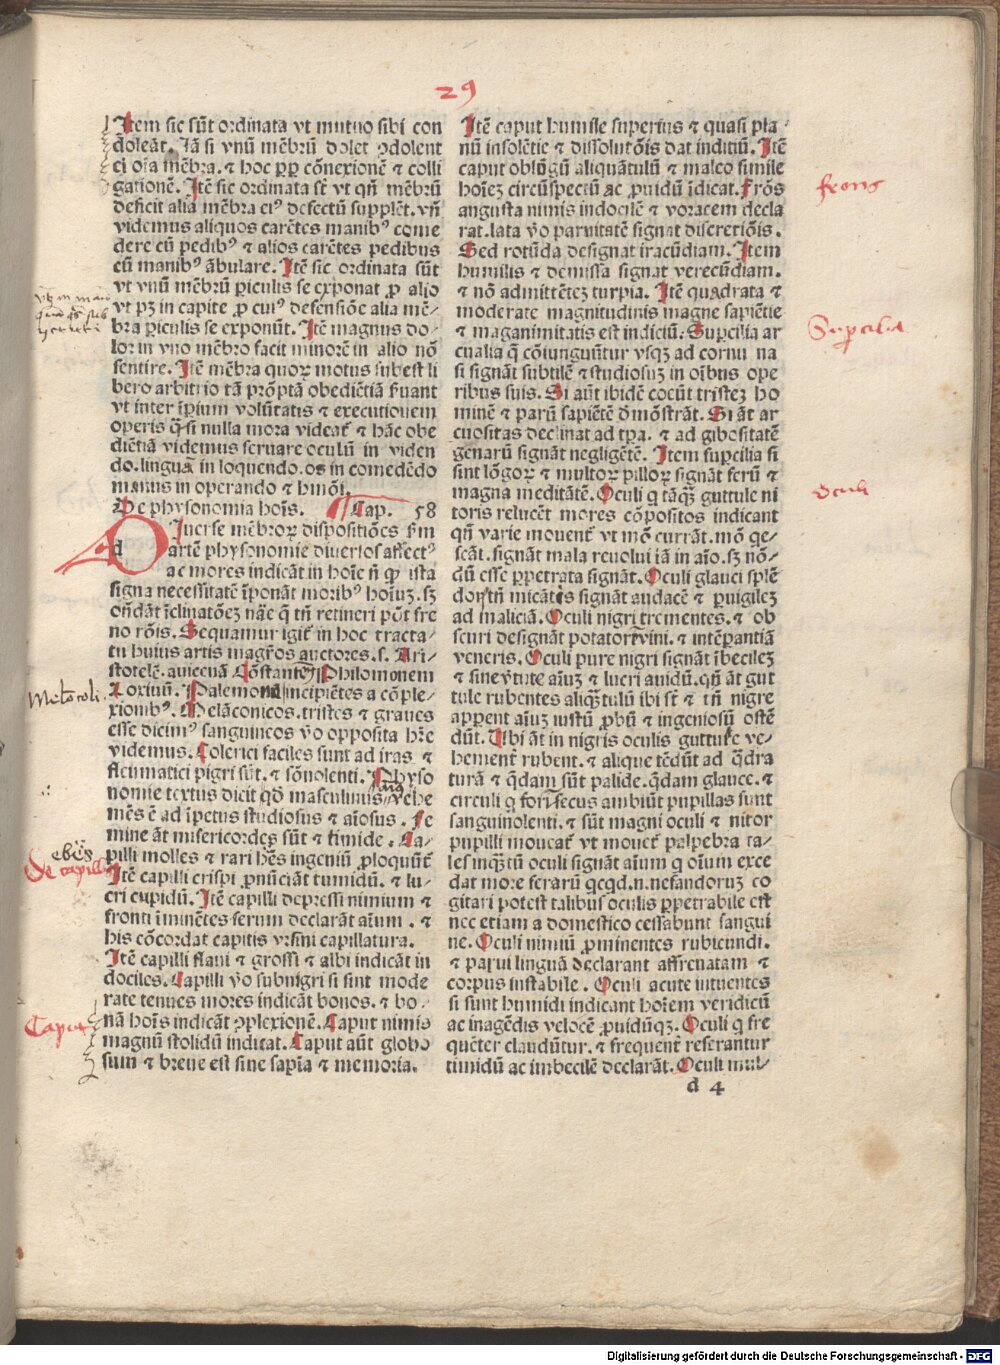 29
Item sic sūt ordinata vt mutuo sibi con
doleāt. Iā si vnū mēbrū dolet ɔdolent
ei oīa mēbra. ⁊ hoc ꝓp cōnexionē ⁊ colli
gationē. Itē sic ordinata sт̄ vt qn̄ mēbrū
deficit alia mēbra eiꝰ defectū supplēt. vn̄
videmus aliquos carētes manibꝰ come
dere cū pedibꝰ ⁊ alios carētes pedibus
cū manibꝰ ābulare. Itē sic ordinata sūt
vt vnū mēbrū ꝑiculis se exponat ꝓ alio
vt pꝫ in capite ꝓ cuiꝰ defensiōe alia mē-
bra ꝑiculis se exponūt. Itē magnus do-
lor in vno mēbro facit minorē in alio nō
sentire. Itē mēbra quoꝝ motus subest li
bero arbitrio tā prōptā obediētiā ẜuant
vt inter īꝑium volūtatis ⁊ executionem
operis q̄si nulla mora videat̄ ⁊ hāc obe
diētiā videmus seruare oculū in viden
do. lingua in loquendo. os in comedēdo
manus in operando ⁊ hmōi.
De physonomia hoīs. Cap. 58
Diuerse mēbroꝝ dispositiōes ẜm
artē physonomie diuersos affectꝰ
ac mores indicāt in hoīe n̄ ꝙ ista
signa necessitatē īponāt moribꝰ hoīuꝫ. sꝫ
ondāt īclinatōeꝫ nāe q̄ tn̄ retineri pōt fre
no rōis. Sequamur igit̄ in hoc tracta-
tu huius artis magr̄os auctores. s. Ari-
stotelē. auicenā Cōstantinū Philomonem
Loxiuū. Palemonē incipiētes a cōple-
xionibꝰ. Melāconicos. tristes ⁊ graues
esse dicimꝰ sanguineos v̄o opposita hr̄e
videmus. Colerici faciles sunt ad iras ⁊
fleumatici pigri sūt. ⁊ sōnolenti. Physo
nomie textus dicit qd̄ masculinus vehe
mēs ē ad īpetus studiosus ⁊ aīosus. Fe
mine āt misericordes sūt ⁊ timide. Ca-
pilli molles ⁊ rari hn̄s ingeniū ꝓloquūt̄
Itē capilli crispi ꝓnūciāt tumidū. ⁊ lu-
cri cupidū. Itē capilli depressi nimium ⁊
fronti īminētes ferum declarāt aīum. ⁊
his cōcordat capitis vrsini capillatura.
Itē capilli flaui ⁊ grossi ⁊ albi indicāt in
dociles. Capilli v̄o subnigri si sint mode
rate tenues mores indicāt bonos. ⁊ bo-
nā hoīs indicāt ɔplexionē. Caput nimis
magnū stolidū indicat. Caput aūt globo
sum ⁊ breue est sine sapīa ⁊ memoria.
Itē caput humile superius ⁊ quasi pla
nū insolētie ⁊ dissolutōis dat inditiū. Itē
caput oblōgū aliquātulū ⁊ malleo simile
hoīeꝫ circūspectū ac ꝓuidū īdicat. Frōs
angusta nimis indocilē ⁊ voracem decla
rat. lata v̄o paruitatē signat discretiōis.
Sed rotūda designat iracūdiam. Item
humilis ⁊ demissa signat verecūdiam.
⁊ nō admittēteꝫ turpia. Itē quadrata ⁊
moderate magnitudinis magne sapiētie
⁊ maganimitatis est indiciū. Suꝑcilia ar
cualia q̄ cōiunguūtur vsqꝫ ad cornu na
si signāt subtilē ⁊ studiosuꝫ in oībus ope
ribus suis. Si aūt ibidē coeūt tristeꝫ ho
minē ⁊ parū sapiētē dmōstrāt. Si āt ar
cuositas declinat ad tꝑa. ⁊ ad gibositatē
genarū signāt negligētē. Item suꝑcilia si
sint lōgoꝝ ⁊ multoꝝ pilloꝝ signāt ferū ⁊
magna meditātē. Oculi q tāqꝫ guttule ni
toris relucēt mores cōpositos indicant
qn̄ varie mouent̄ vt mō currāt. mō q̄e-
scāt. signāt mala reuolui iā in aīo. sꝫ nō-
dū esse ꝑpetrata signāt. Oculi glauci splē
dor tn̄ micātes signāt audacē ⁊ ꝑuigileꝫ
ad maliciā. Oculi nigri trementes. ⁊ ob
scuri designāt potatorē vini. ⁊ intēꝑantiā
veneris. Oculi pure nigri signāt ībecileꝫ
⁊ sine v̄tute aīuꝫ ⁊ lucri auidū. qn̄ āt gut
tule rubentes aliqꝫtulū ibi sт̄ ⁊ tn̄ nigre
apꝑent aīuꝫ iustū ꝓbū ⁊ ingeniosū ostē
dūt. Ubi āt in nigris oculis gutture ve-
hement̄ rubent. ⁊ alique tēdūt ad q̄dra
turā ⁊ q̄dam sūt palide. q̄dam glauce. ⁊
circuli q forīsecus ambiūt pupillas sunt
sanguinolenti. ⁊ sūt magni oculi ⁊ nitor
pupilli moucat̄ vt mouet̄ palpebra ta-
les inqꝫtū oculi signāt aīum q oīum exce
dat more ferarū qcqd. n. nefandoruꝫ co
gitari potest talibus oculis ꝑpetrabile est
nec etiam a domestico cessabunt sangui
ne. Oculi nimiū ꝓminentes rubicundi.
⁊ parui linguā declarant affrenatam ⁊
corpus instabile. Oculi acute intuentes
si sunt humidi indicant hoīem veridicū
ac inagēdis velocē ꝓuidūqꝫ. Oculi q fre
quēter claudūtur. ⁊ frequent̄ referantur
timidū ac imbecilē declarāt. Oculi mul-
d 4
Melācoli.
de capillis
Caput
frons
Suꝑcilia
Oculi
Digitalisierung gefördert durch die Deutsche Forschungsgemeinschaft - DFG